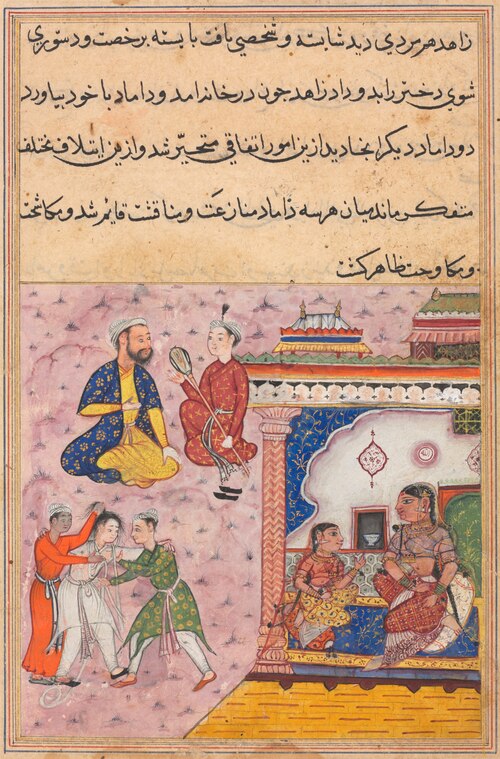 زاهد هر مردی دید شایسته و شخصی یافت بایسته برخصت و دستوری
شوی دختر را بدو داد زاهد چون در خانه امد و داماد با خود بیاورد
دو داماد دیکر انجا دید ازین امور اتفاقی متحیّر شد و ازین ایتلاف مختلف
متفکر ماند میان هر سه داماد منازعت و مناقشت قایم شد و مکاشحت
و مکاوحت ظاهر کشت